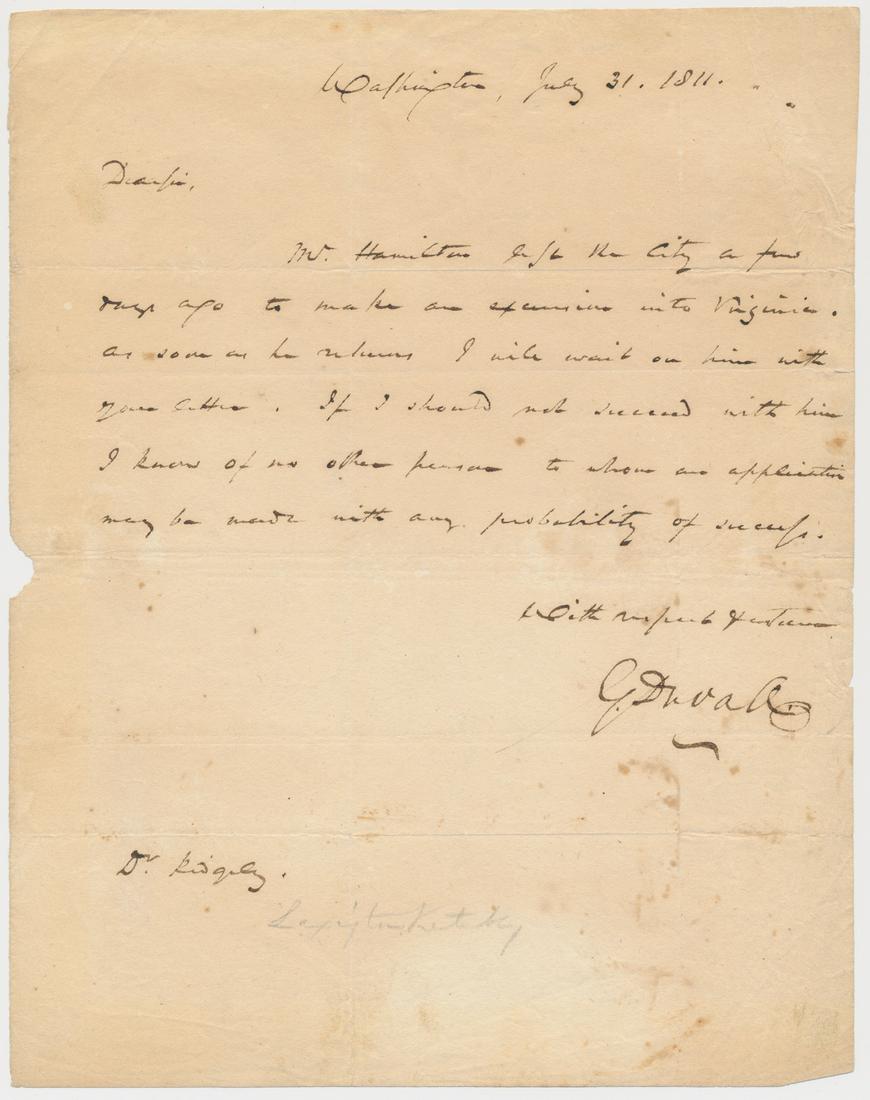 Washington, July 31. 1811.
Dear Sir,
Mr. Hamilton left the City a few
days ago to make an excursion into Virginia.
as soon as he returns I will wait on him with
your letter. If I should not succeed with him
I know of no other person to whom an application
may be made with any probability of success.
With respect & esteem
G. Duvall
Dr. Ridgely.
Lexington Kentucky